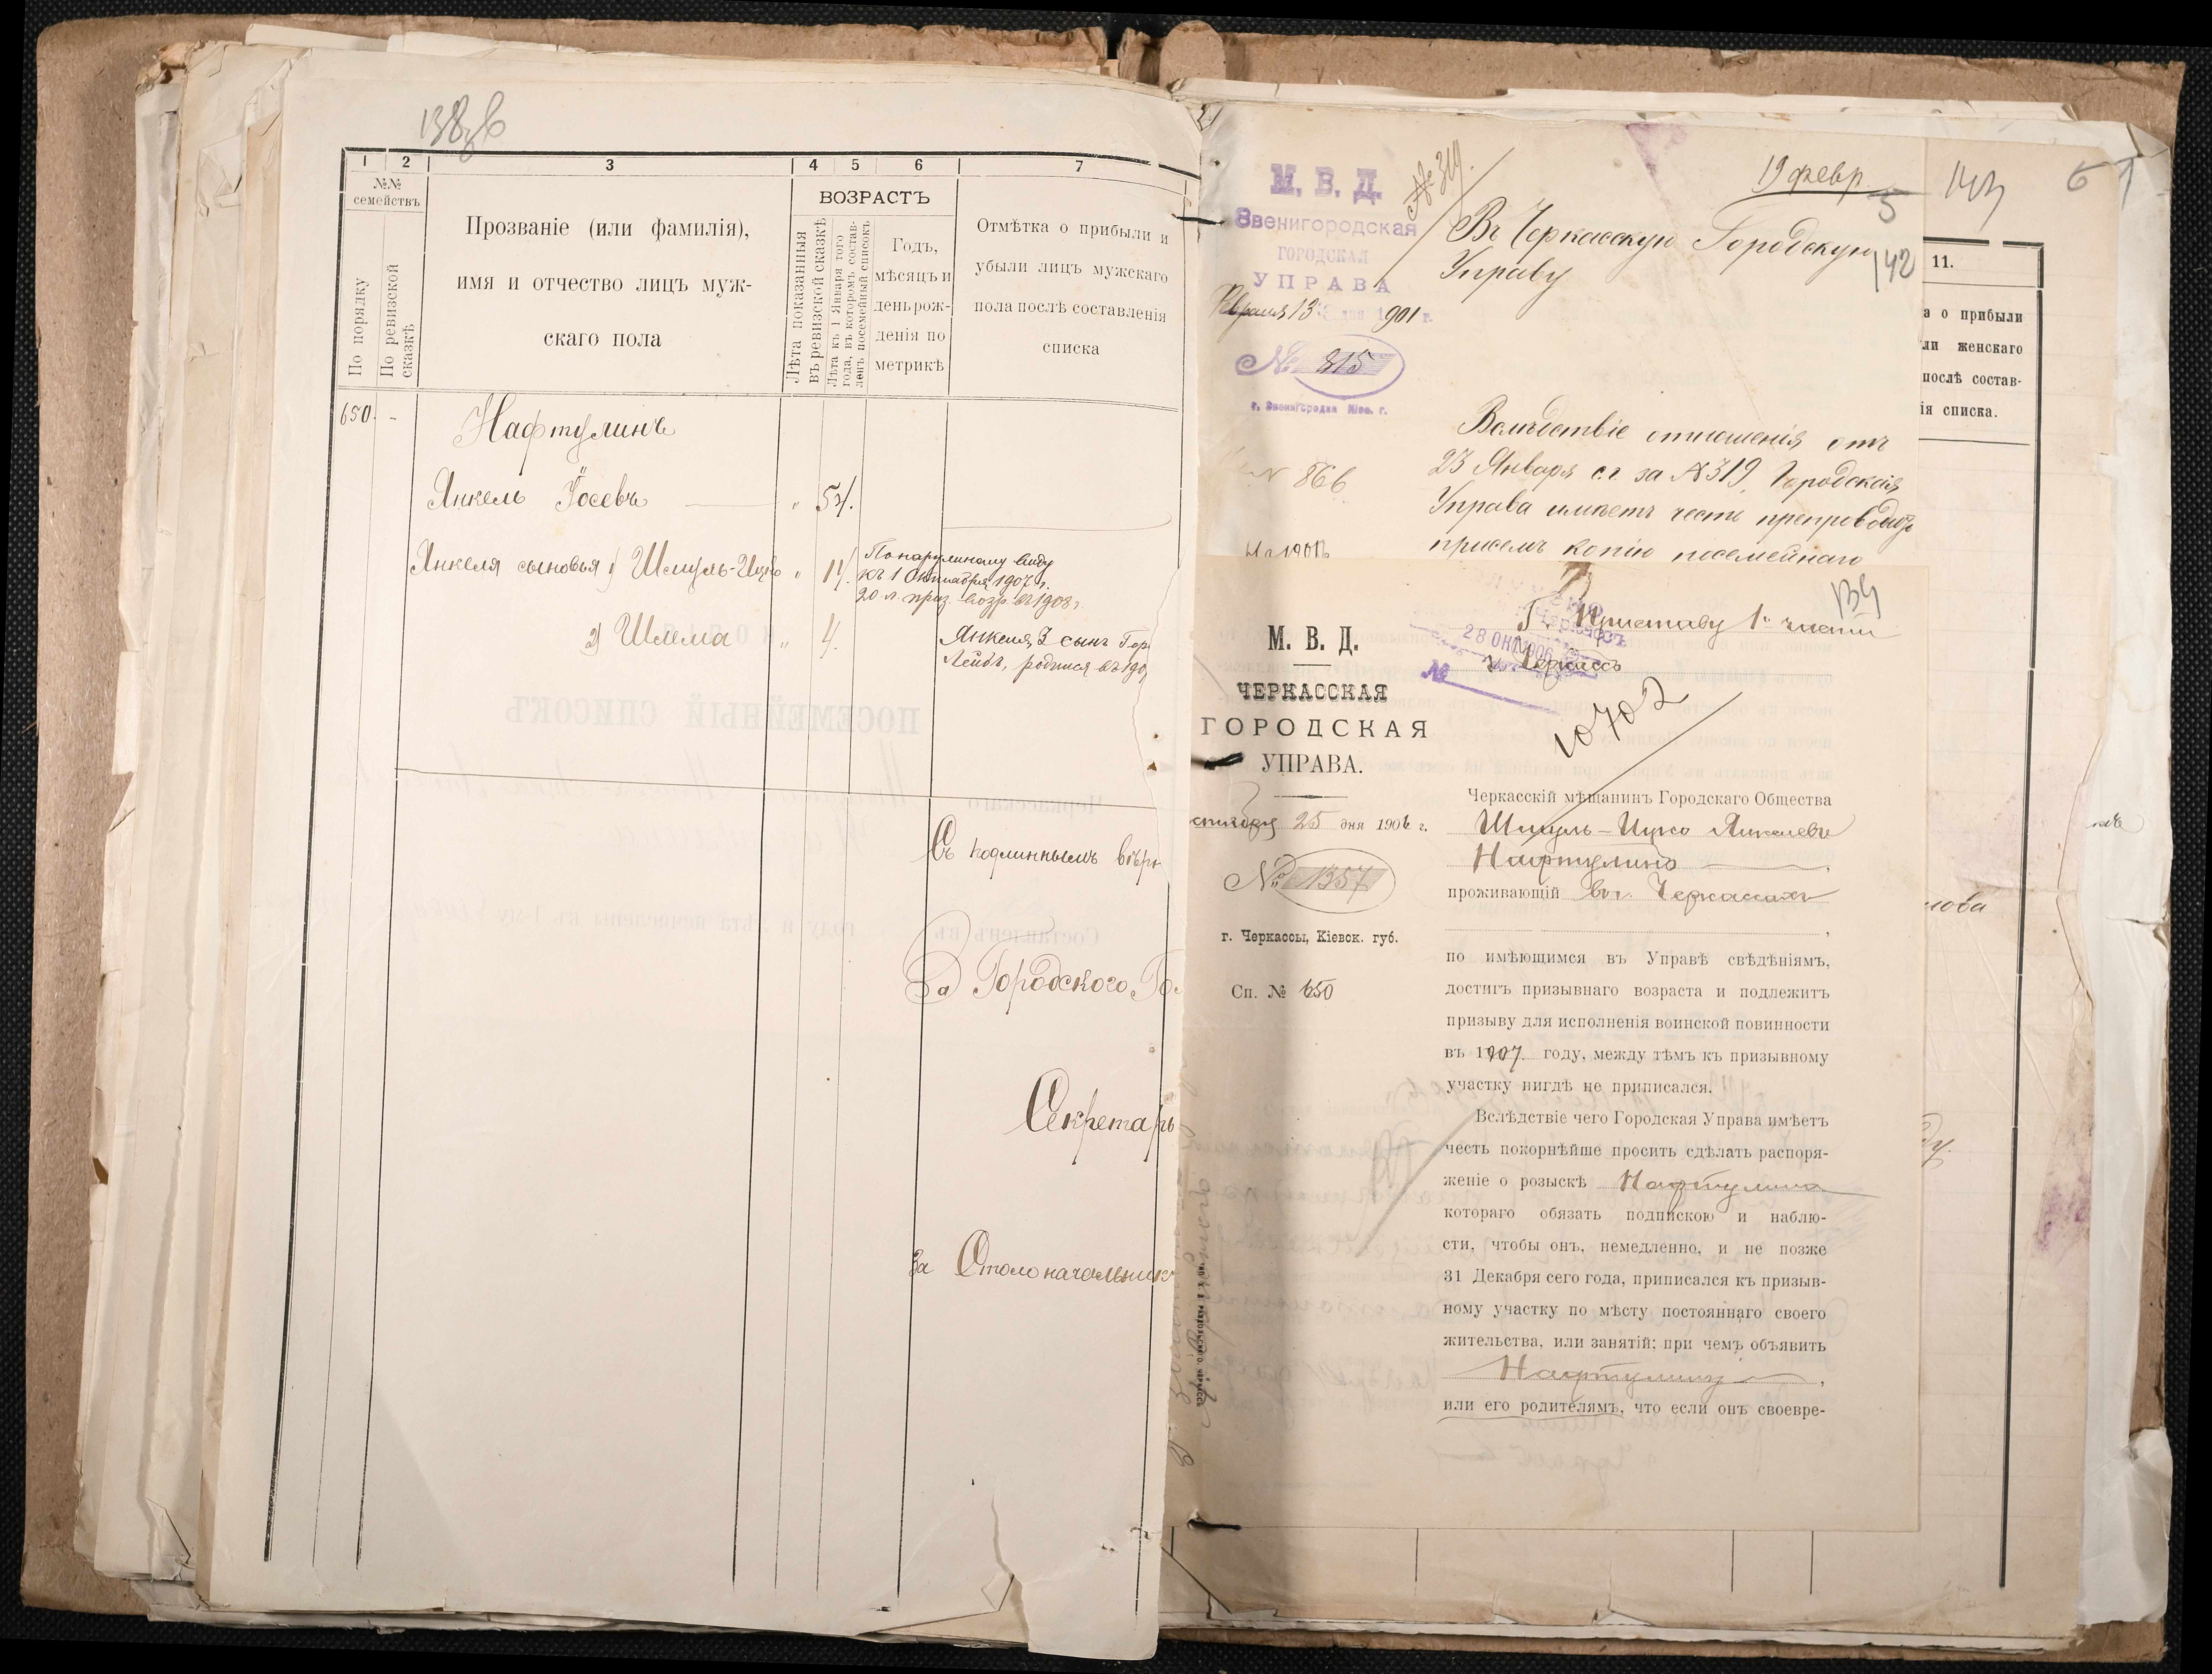 1
2
3
4
5
6
7
№№
семействъ
По порядку
По ревизской
сказкѣ
Прозваніе (или фамилія),
имя и отчество лицъ муж-
скаго пола
ВОЗРАСТЪ
Лѣта показанныя
въ ревизской сказкѣ
Лѣта къ 1 Января того
года, въ которомъ состав-
ленъ посемейный списокъ
Годъ,
мѣсяцъ и
день рож-
денія по
метрикѣ
Отмѣтка о прибыли и
убыли лицъ мужскаго
пола послѣ составленія
списка
650. -
Нафтулинъ
Янкель Іосевъ
Янкеля сыновья 1) Шмуль-Ицко
къ 1 Октября 1907 г.
20 л. приз. возр. въ 1908 г.
2) Шлема " 4.
Янкеля 3 сынъ Гер
Лейбъ, родился въ 190
Съ подлиннымъ вѣрн
За Городского Го
Секретарь
За Столоначальник
М. В. Д.
Звенигородская
ГОРОДСКАЯ
УПРАВА
Февраля 13 дня 1901 г.
№ 815
г. Звенигородка Кіев. г.
№ 319.
19 февр
142
Въ Черкасскую Городскую
Управу
№ 866
Вслѣдствіе отношенія отъ
23 Января с.г. за № 319, Городская
Управа имѣетъ честь препроводить
при семъ копію посемейнаго
11.
а о прибыли
ли женскаго
послѣ состав-
ія списка.
139
Г. Приставу 1й части
г. Черкассъ
28 ОКТ 1906
№
10702
М. В. Д.
ЧЕРКАССКАЯ
ГОРОДСКАЯ
УПРАВА.
25 дня 1906 г.
№ 1357
г. Черкассы, Кіевск. губ.
Сп. № 650
Черкасскій мѣщанинъ Городскаго Общества
Шмуль-Ицко Янкелевъ
Нафтулинъ,
проживающій въ г. Черкассахъ
,
по имѣющимся въ Управѣ свѣдѣніямъ,
достигъ призывнаго возраста и подлежитъ
призыву для исполненія воинской повинности
въ 1907 году, между тѣмъ къ призывному
участку нигдѣ не приписался.
Вслѣдствіе чего Городская Управа имѣетъ
честь покорнѣйше просить сдѣлать распоря-
женіе о розыскѣ Нафтулина
котораго обязать подпискою и наблю-
сти, чтобы онъ, немедленно, и не позже
31 Декабря сего года, приписался къ призыв-
ному участку по мѣсту постояннаго своего
жительства, или занятій; при чемъ объявить
Нафтулину,
или его родителямъ, что если онъ своевре-